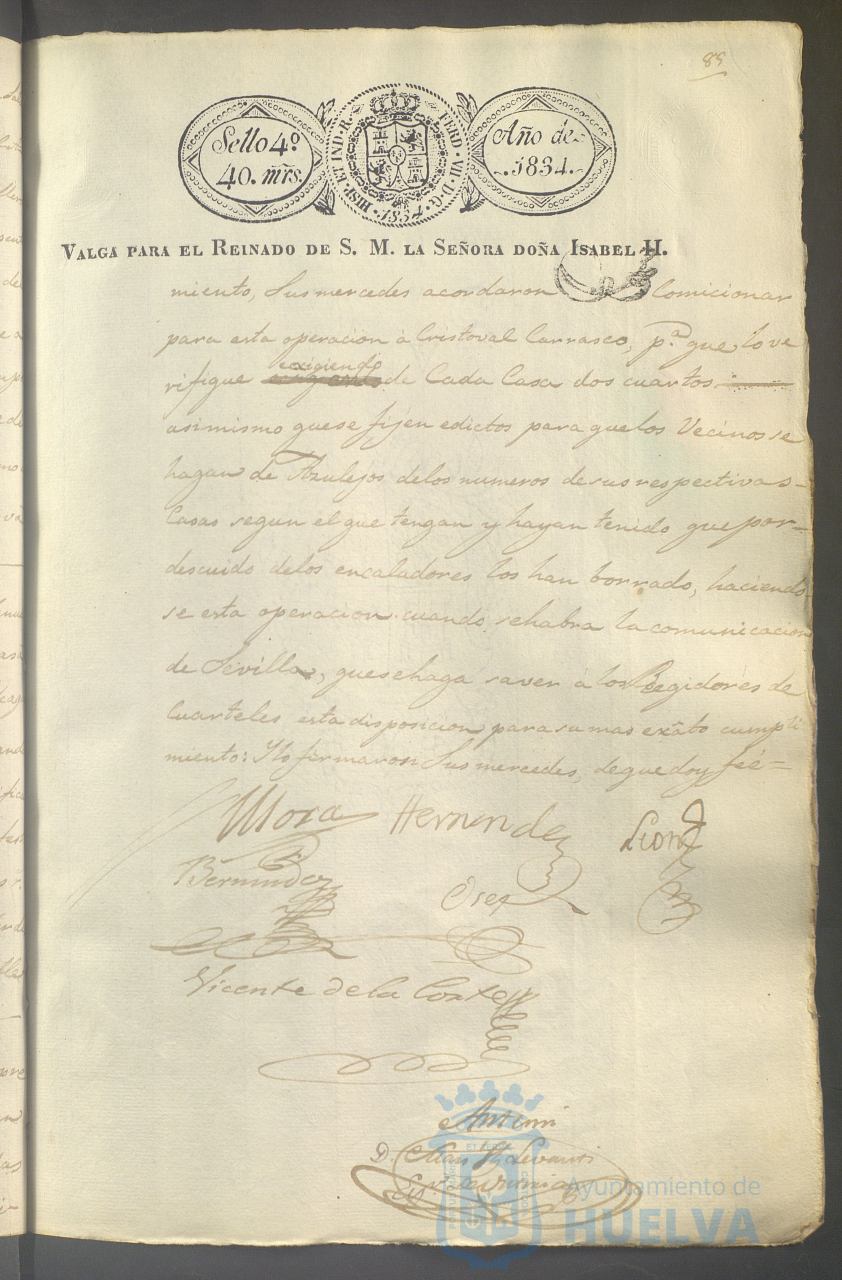 85
Sello 4º
40. mrs.
HISP. ET IND. R. FERD. VII. D. G. 1834
Año de
1834.
VALGA PARA EL REINADO DE S. M. LA SEÑORA DOÑA ISABEL II.
miento, Sus mercedes acordaron Comicionar
para esta operacion à Cristoval Carrasco, pª. que lo ve
exigiendo
rifique de Cada Casa dos cuartos
asimismo que se fijen edictos para que los Vecinos se
hagan de Azulejos de los numeros de sus respectivas
Casas segun el que tengan y hayan tenido que por
descuido de los encaladores los han borrado, haciendo
se esta operacion cuando se habra la comunicacion
de Sevilla, que se haga saver à los Regidores de
Cuarteles esta disposicion para su mas exâto cumpli
miento: Y lo firmaron Sus mercedes, de que doy feé=
Mora Hernandez Leon
Bermudez
Vicente de la Corte
Ante mi
D. Juan
Ayuntamiento de
HUELVA